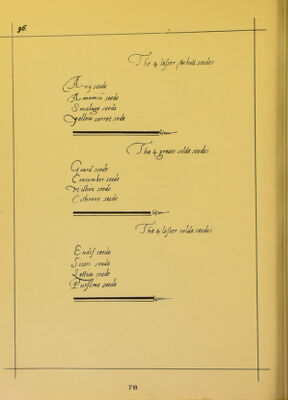 96.
The 4 lesser whott seedes
Anny seede
Amomū seede
Smalage seede
Yellow carret sede
The 4 greate colde seedes
Gourd seede
Cucumber seede
Million seede
Citheron seede
The 4 lesser colde seedes
Endif seede
Sicori seede
Lettice seede
Purslme seede
78